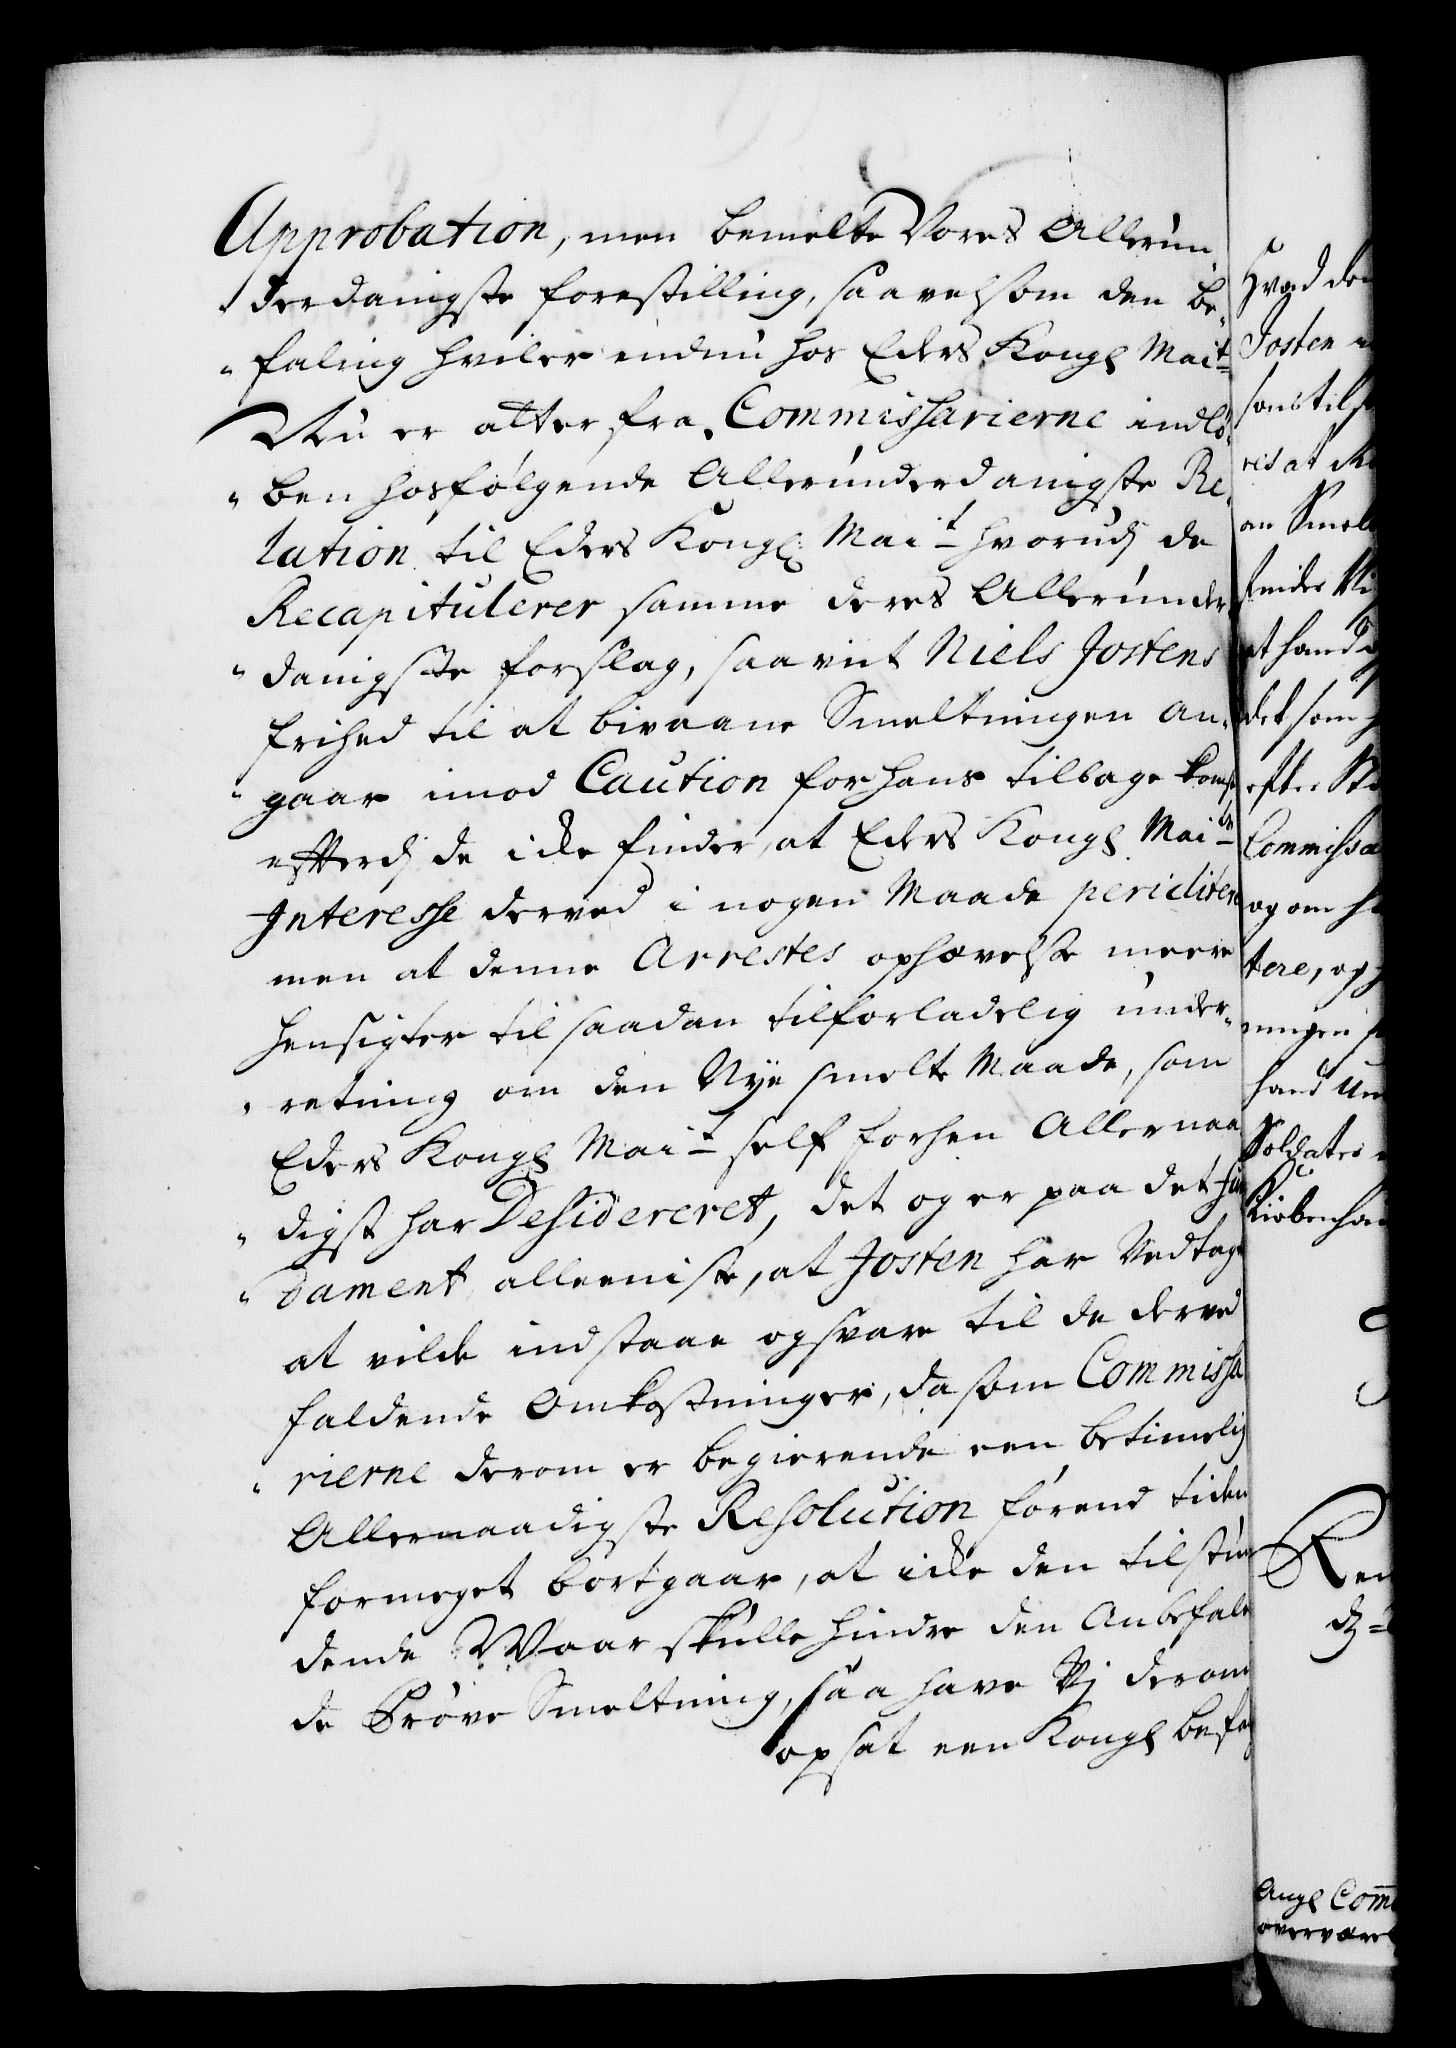 Approbation, men bemelte Vores Allerun
derdanigste forestilling, saavelsom den be„
„faling hviler endnu hos Eders Kongl Mait
Nu er atter fra Commissarierne indlö„
„ben hosfölgende Allerunderdanigste Re„
lation til Eders Kongl: Mait hvorudj de
Recapitulerer samme deres Allerunder
„danigste forslag, saavit Niels Jostens
frihed til at bivaane Smeltningen an„
„gaar imod Caution for hans tilbage komst,
efterdj de icke finder, at Eders Kongl Maits
Interesse derved i nogen Maade periclitere
men at denne Arrestes ophævelse meere
hensigter til saadan tilforladelig under„
„retning om den Nye smelte Maade, som
Eders Kongl Mait self forhen Allernaa
„digst har Desidereret, det og er paa det fun
„dament alleeniste, at Josten har Vedtaget
at vilde indstaae og svare til de derved
faldende Omkostninger, da som Commissa
„rierne derom er begierende een betimelig
Allernaadigste Resolution förend tiden
formeget bortgaar, at icke den tilstun
dende Waar skulle hindre den Anbefale
de Pröve Smeltning, saa have Vj derom
opsat een Kongl befal
Hvad den
Josten
som tilf
vis at
an Smel
finder
at hand
det som
efter
Commissa
og om
tere, og
ningen
hand
Soldater
Kiöbenha
Angl Comm
overvære